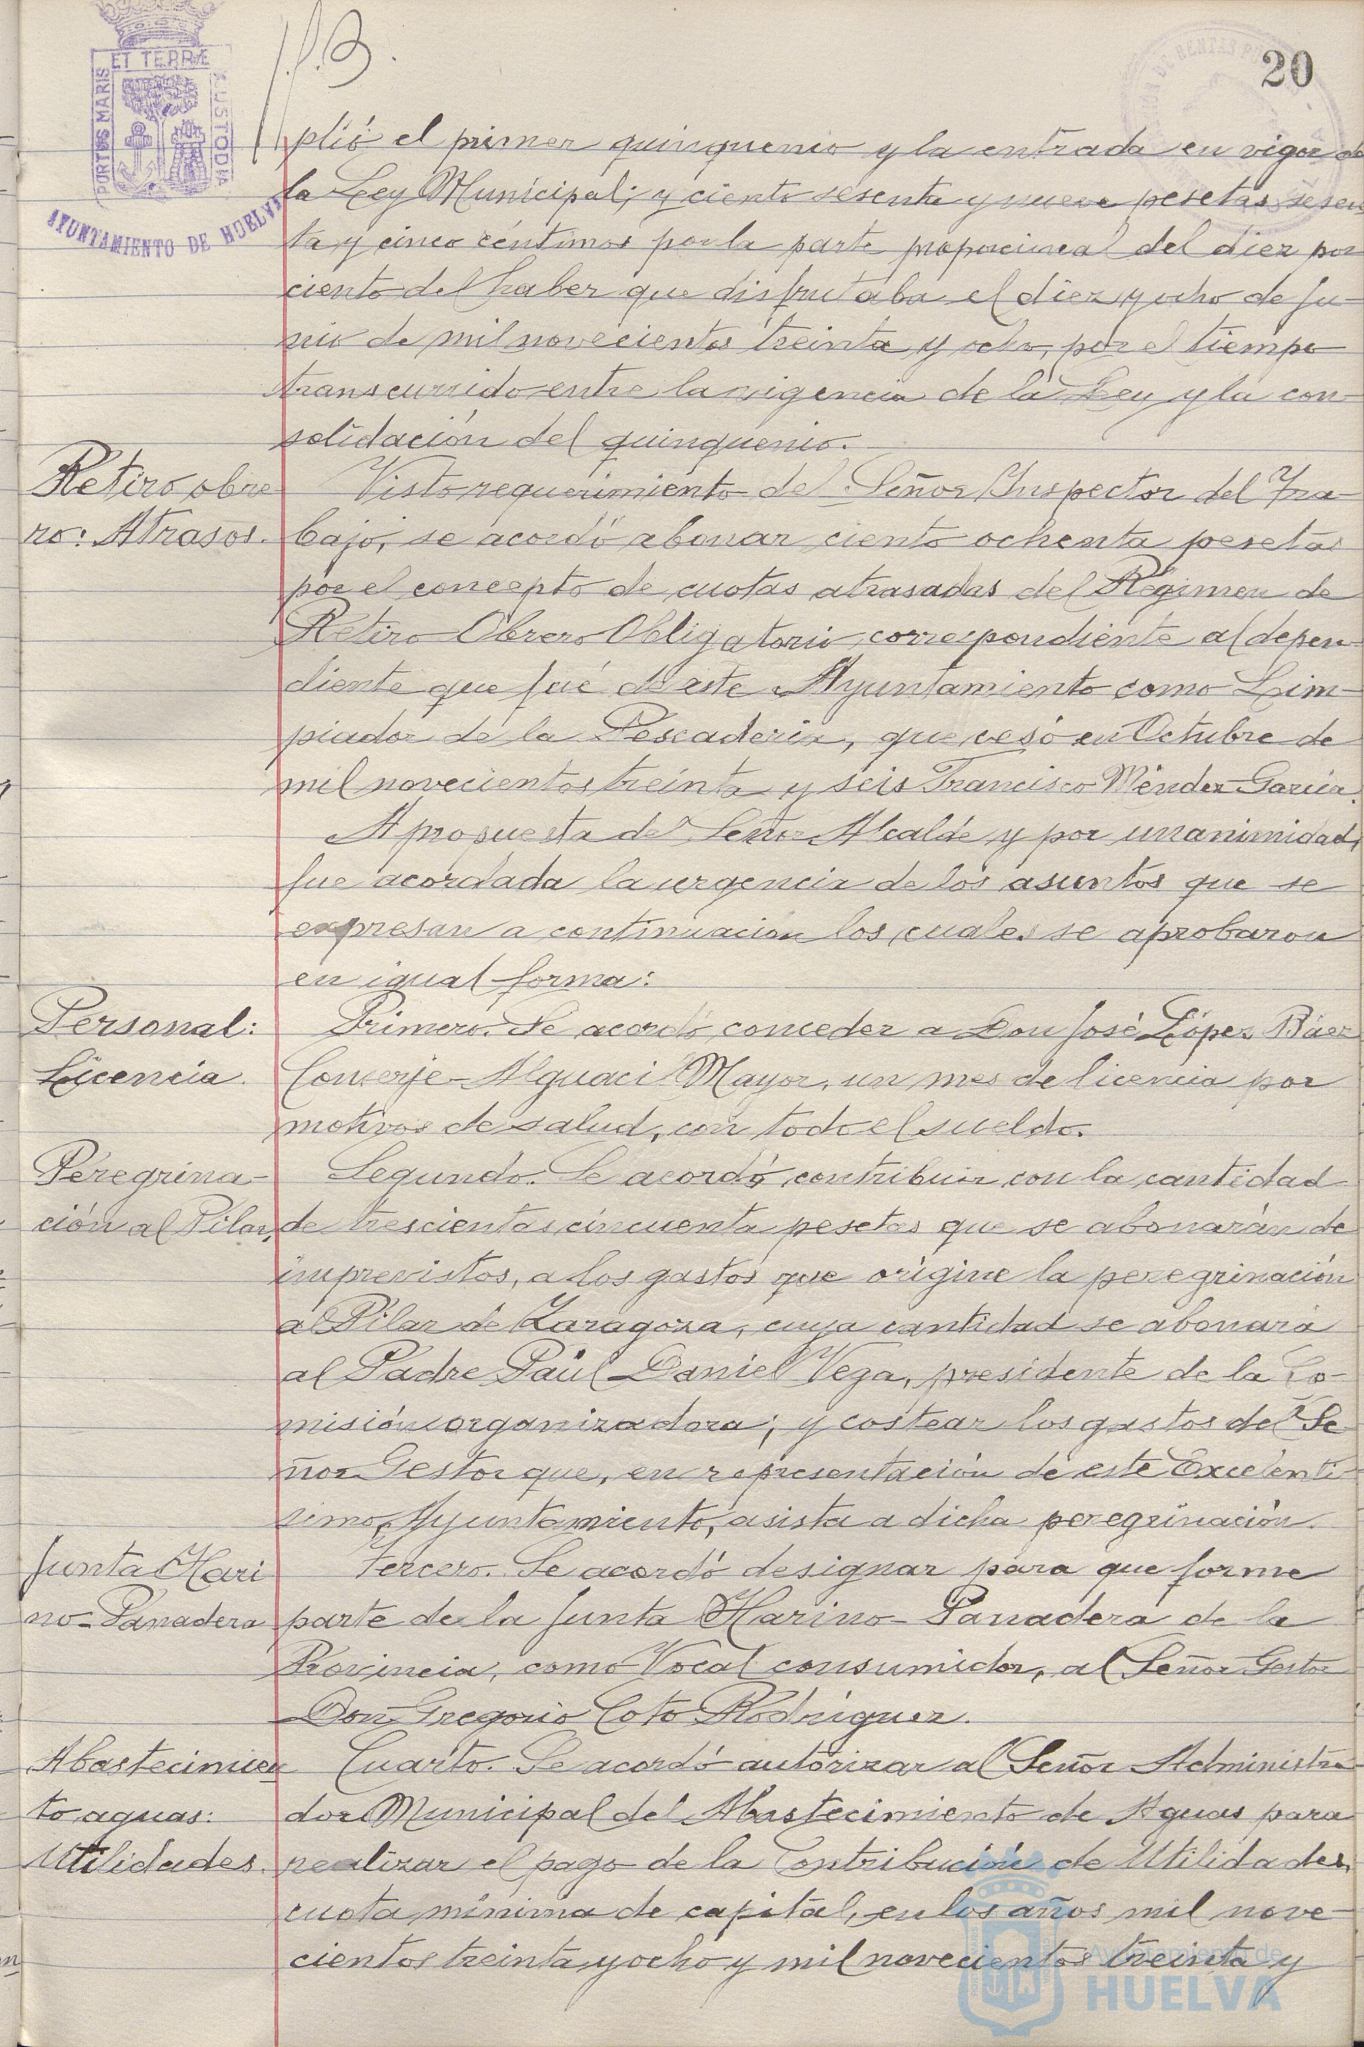 20
PORTUS MARIS ET TERRÆ CUSTODIA
AYUNTAMIENTO DE HUELVA
plió el primer quinquenio y la entrada en vigor de
la Ley Municipal; y ciento sesenta y nueve pesetas sesen
ta y cinco céntimos por la parte proporcional del diez por
ciento del haber que disfrutaba el diez y ocho de Ju-
nio de mil novecientos treinta y ocho, por el tiempo
transcurrido entre la vigencia de la Ley y la con-
solidación del quinquenio.
Retiro obre
ro: Atrasos.
Visto requerimiento del Señor Inspector del Tra-
bajo, se acordó abonar ciento ochenta pesetas
por el concepto de cuotas atrasadas del Régimen de
Retiro Obrero Obligatorio, correspondiente al depen-
diente que fué de este Ayuntamiento como Lim-
piador de la Pescadería, que cesó en Octubre de
mil novecientos treinta y seis Francisco Méndez García.
A propuesta del Señor Alcalde y por unanimidad,
fue acordada la urgencia de los asuntos que se
expresan a continuación los cuales se aprobaron
en igual forma:
Personal:
Licencia.
Primero. Se acordó conceder a Don José López Báez
Conserje-Alguacil Mayor, un mes de licencia por
motivos de salud, con todo el sueldo.
Peregrina-
ción al Pilar.
Segundo. Se acordó contribuir con la cantidad
de trescientas cincuenta pesetas que se abonarán de
imprevistos, a los gastos que origine la peregrinación
al Pilar de Zaragoza, cuya cantidad se abonará
al Padre Paúl Daniel Vega, presidente de la Co-
misión organizadora; y costear los gastos del Se
ñor Gestor que, en representación de este Excelentí-
simo Ayuntamiento, asista a dicha peregrinación.
Junta Hari
no-Panadera
Tercero. Se acordó designar para que forme
parte de la Junta Harino-Panadera de la
Provincia, como Vocal consumidor, al Señor Gestor
Don Gregorio Coto Rodríguez.
Abastecimien
to aguas:
Utilidades.
Cuarto. Se acordó autorizar al Señor Administra-
dor Municipal del Abastecimiento de Aguas para
realizar el pago de la Contribución de Utilidades,
cuota mínima de capital, en los años mil nove-
cientos treinta y ocho y mil novecientos treinta y
Ayuntamiento de
HUELVA